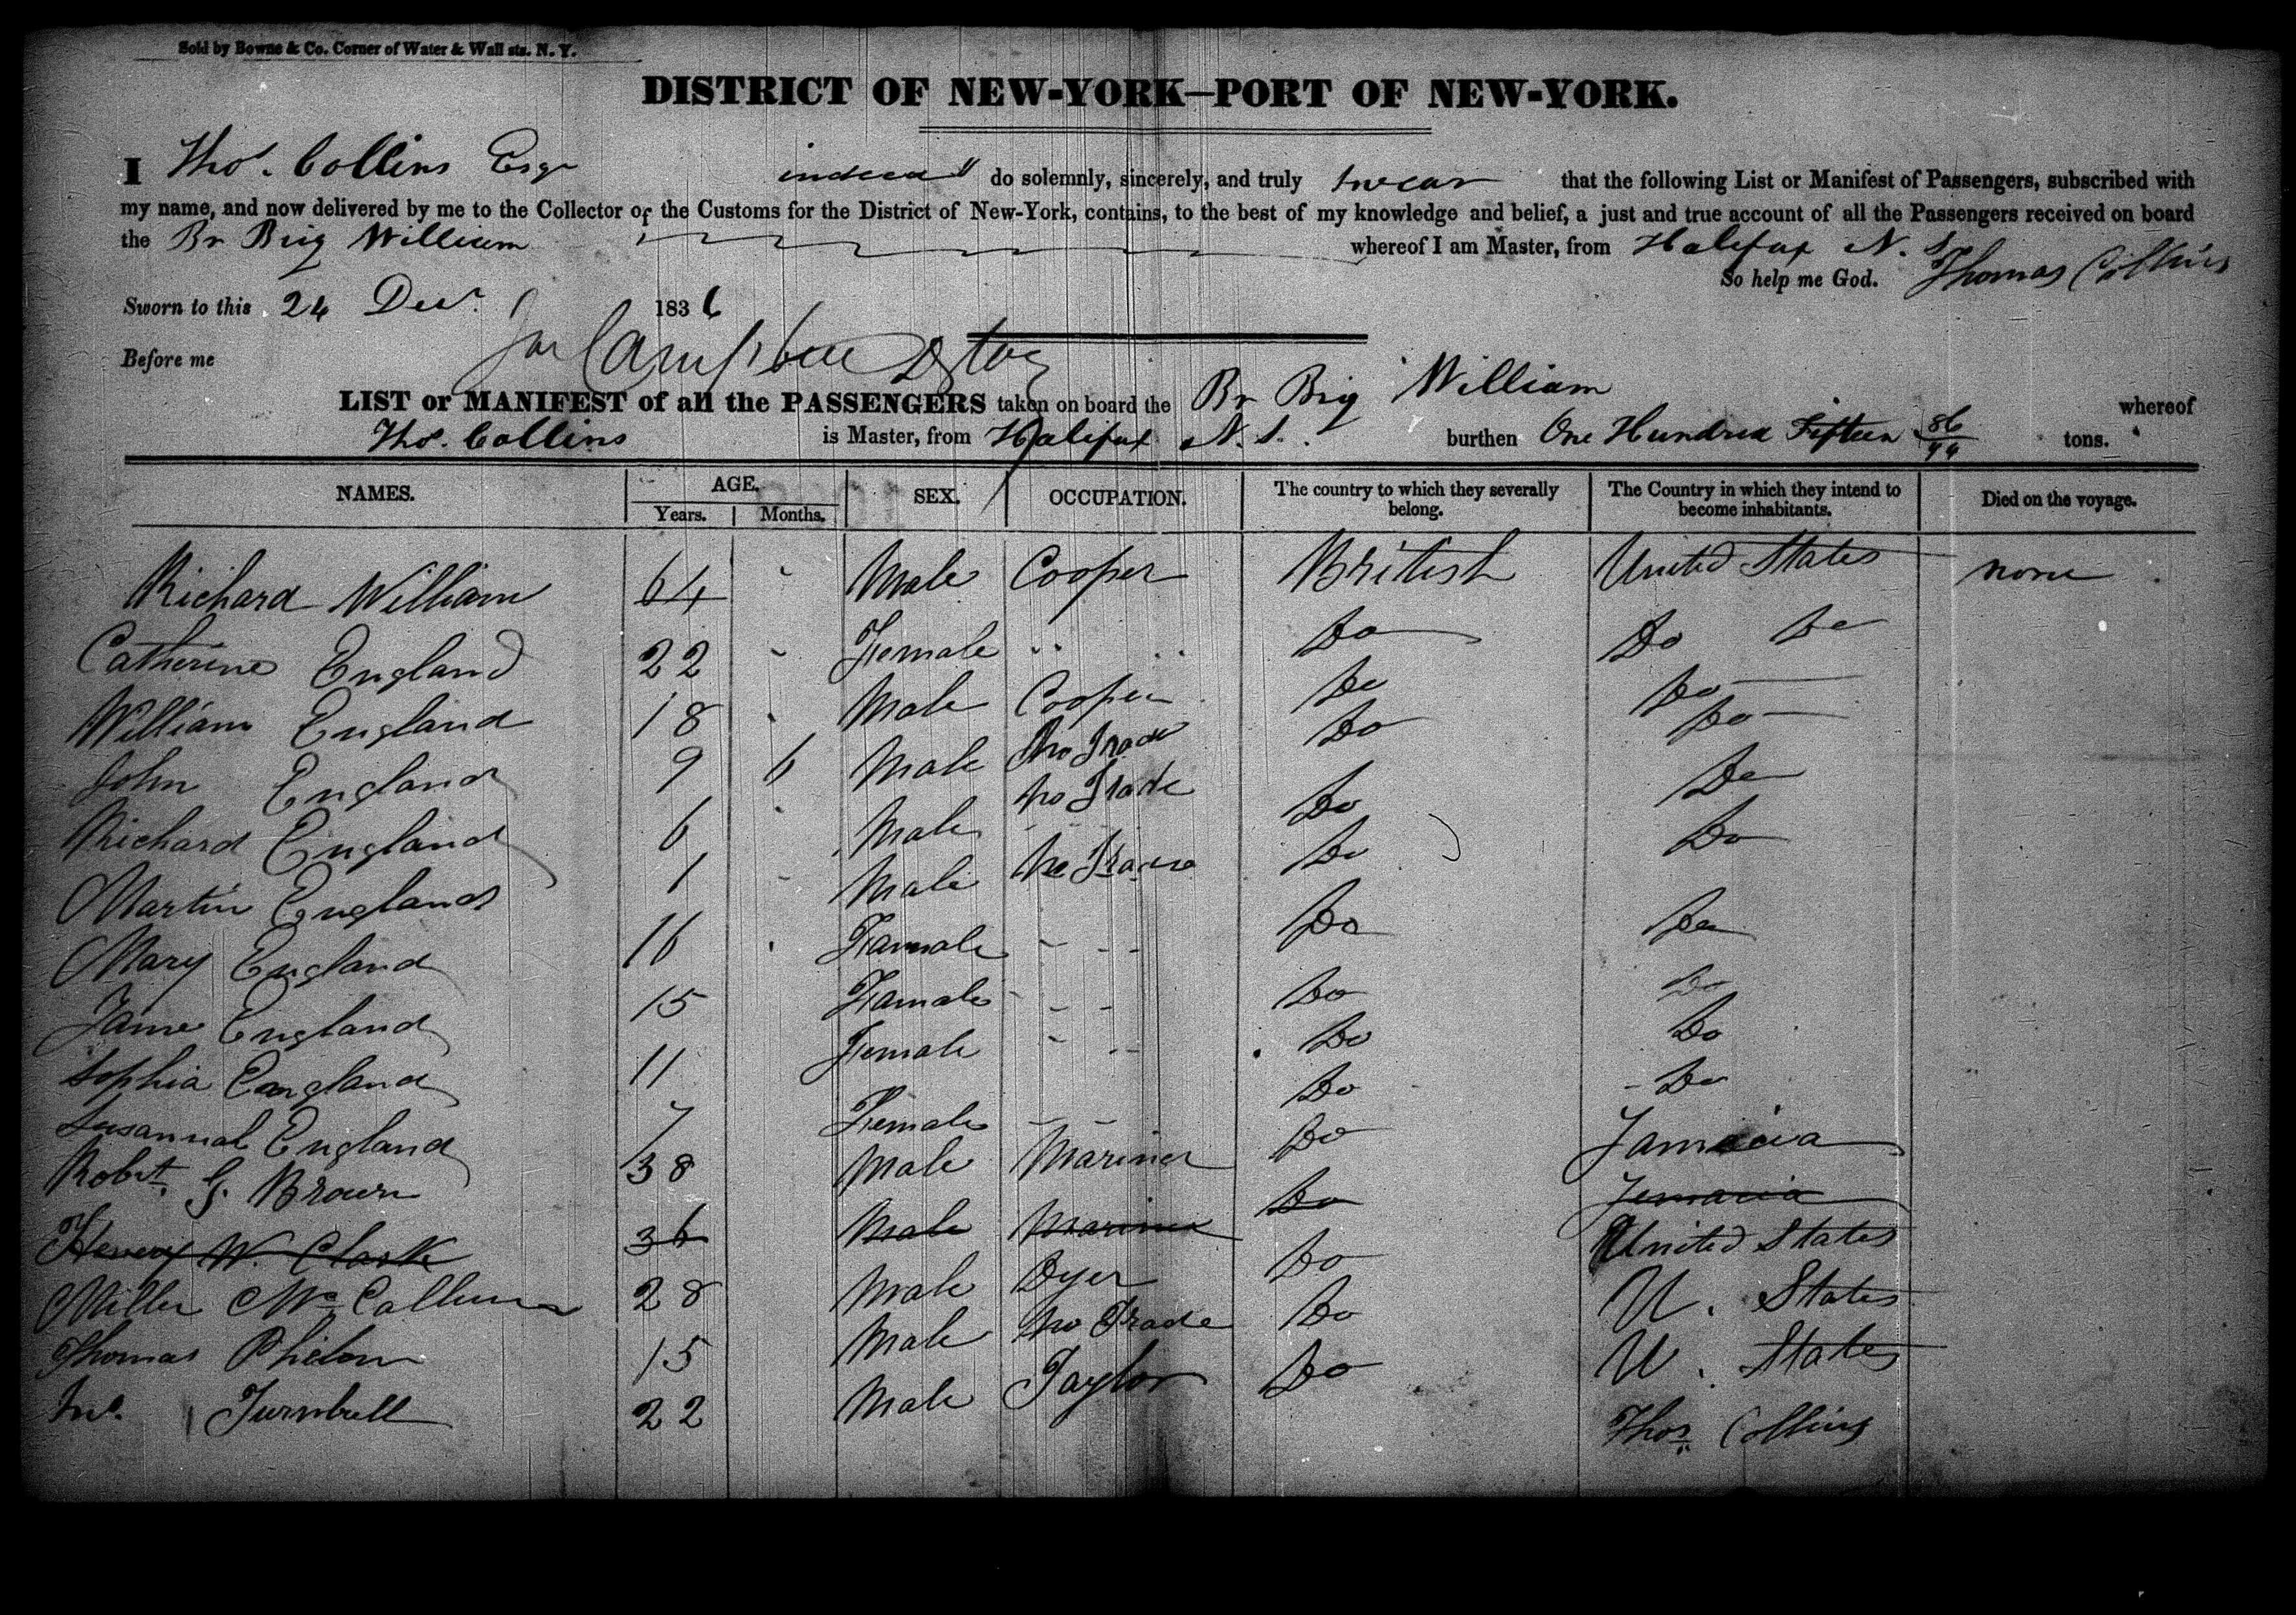 Sold by Bowne & Co. Corner of Water & Wall sts. N. Y.
DISTRICT OF NEW-YORK—PORT OF NEW-YORK.
I Thos. Collins Esqr do solemnly, sincerely, and truly swear that the following List or Manifest of Passengers, subscribed with
my name, and now delivered by me to the Collector of the Customs for the District of New-York, contains, to the best of my knowledge and belief, a just and true account of all the Passengers received on board
the Br Brig William whereof I am Master, from Halifax N. S.
So help me God. Thomas Collins
Sworn to this 24 Decr. 1836
Before me
LIST or MANIFEST of all the PASSENGERS taken on board the Br Brig William whereof
Thos. Collins is Master, from Halifax N. S. burthen One Hundred Fifteen 86/94 tons.
NAMES. AGE. SEX. OCCUPATION. The country to which they severally belong. The Country in which they intend to become inhabitants. Died on the voyage.
Years. Months.
Richard William 64 Male Cooper British United States none
Catherine England 22 Female Do Do Do
William England 18 Male Cooper Do Do
John England 9 6 Male No Trade Do Do
Richard England 6 Male No Trade Do Do
Martin England 1 Male No Trade Do Do
Mary England 16 Famale Do Do
Jane England 15 Famale Do Do
Sophia England 11 Female Do Do
Susannah England 7 Female Do Do
Robt. G. Brown 38 Male Mariner Do Jamaica
Henery W. Clark 36 Male Mariner Do Jemaica
Miller McCallum 28 Male Dyer Do United States
Thomas Phelan 15 Male No Trade Do U. States
Jno. Turnbull 22 Male Taylor Do U. States
Thos. Collins